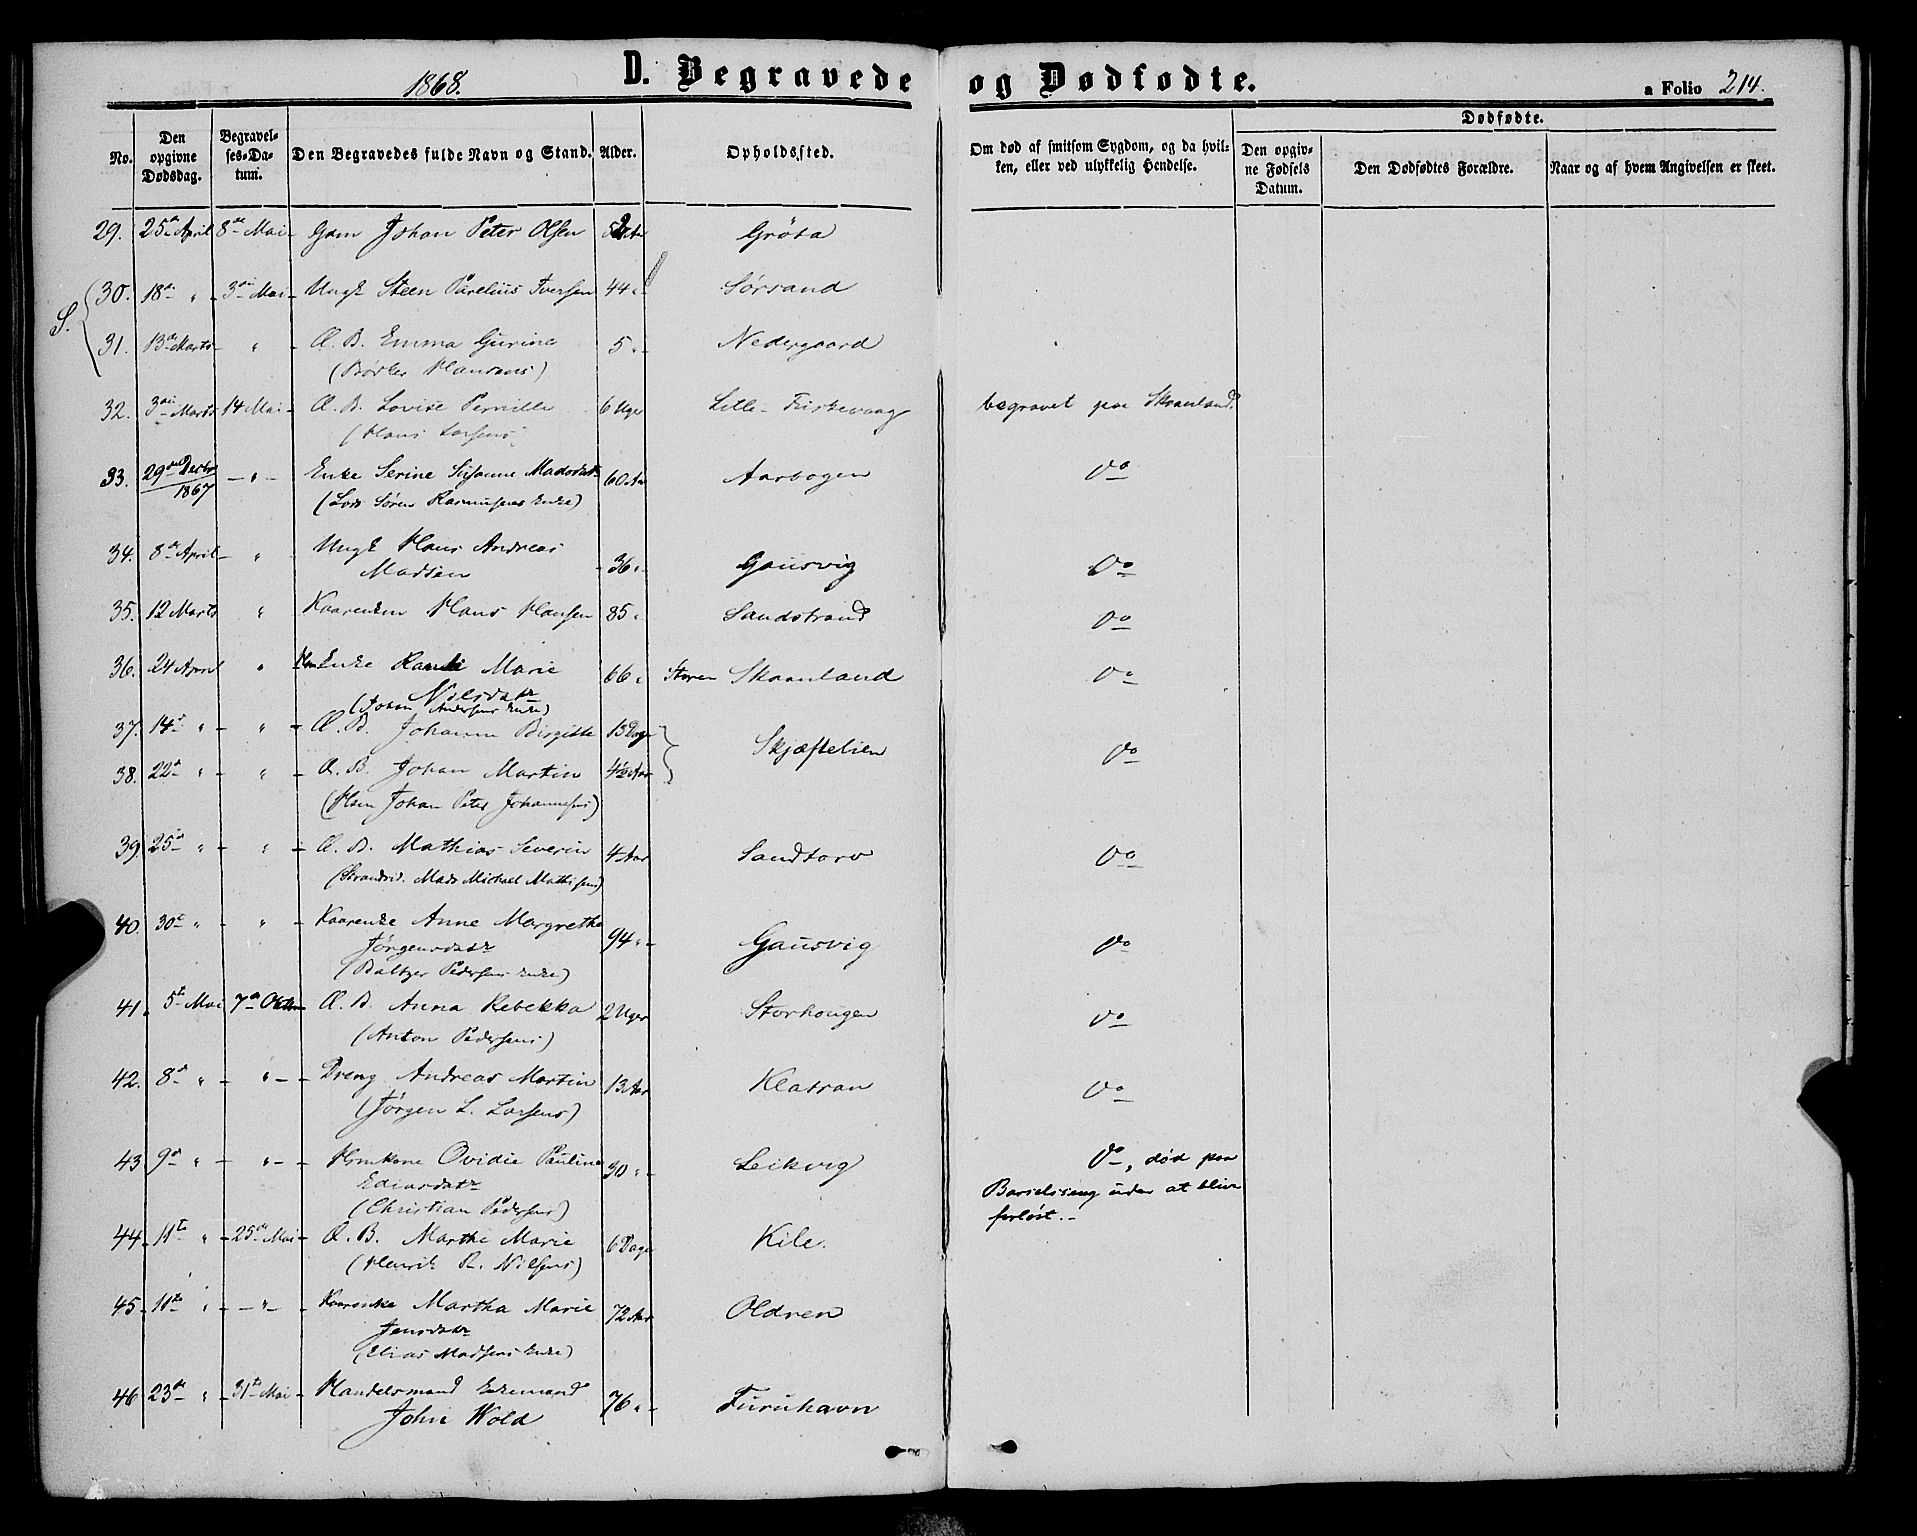 1868.
D. Begravede og Dødfødte.
a Folio 214.
No.
Den opgivne Dødsdag.
Begravelses-Datum.
Den Begravedes fulde Navn og Stand.
Alder.
Opholdssted.
Om død af smitsom Sygdom, og da hvilken, eller ved ulykkelig Hendelse.
Dødfødte.
Den opgivne Fødsels Datum.
Den Dødfødtes Forældre.
Naar og af hvem Angivelsen er skeet.
29. 25de April 8de Mai Gdm Johan Peter Olsen Aar Grøta
S.
30. 18de " 3die Mai Ungk Steen Parelius Iversen 44 " Sørsand
31. 13de Marts " Æ. B. Emma Gurine 5 " Nedergaard
( Hansens)
32. 3die Marts 14 Mai Æ. B. Lovise Pernille 6 Uger Lille-Fiskevaag begravet paa Skaanland.
(Hans Larsens)
33. 29de Decbr 1867 " Enke Serine Susanne Madsdatr 60 Aar Aarbogen Do
(Lods Søren Rasmussens Enke)
34. 8de April " Ungk Hans Andreas 36 " Gausvig Do
Madsen
35. 12 Marts " Kaarenkm Hans Hansen 85 " Sandstrand Do
36. 24 April " Hmenke Marie 66 " Storen Skaanland Do
Nilsdatr
(Johan Andersens Enke)
37. 14de " " Æ. B. Johanna Birgitte 15 Dage Skjæftelien Do
38. 22de " " Æ. B. Johan Martin 4½ Aar
(Hsm Johan Peter Johannesens)
39. 25de " " Æ. B. Mathias Severin 4 Aar Sandtorv Do
(Strands. Mads Michael Mathisens)
40. 30te " " Kaarenke Anne Margrethe 94 " Gausvig Do
Jørgensdatr
(Baltzer Pedersens Enke)
41. 5te Mai 7de Æ. B. Anna Rebekka 2 Uger Storhougen Do
(Anton Pedersens)
42. 8de " " Dreng Andreas Martin 13 Aar Klatran Do
(Jørgen L. Larsens)
43 9de " " Hmkone Ovidie Pauline 30 " Leikvig Do, død paa
Ediasdatr Barselseng uden at blive
(Christian Pedersens) forløst.
44 11te " 25de Mai Æ. B. Marthe Marie 6 Dage Kile.
(Henrik R. Nilsens)
45 11te " " Kaarenke Martha Marie 72 Aar Oldren
Jensdatr
(Elias Madsens Enke)
46 23de " 31te Mai Handelsmand Enkemand 76 " Furuhavn
John Wold